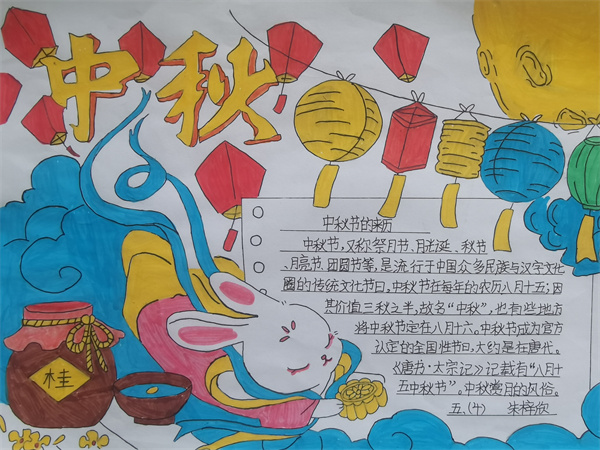 中秋
中秋节的来历
中秋节，又称祭月节、月光诞、秋节
、月亮节、团圆节等，是流行于中国众多民族与汉字文化
圈的传统文化节日，中秋节在每年的农历八月十五；因
其价值三秋之半，故名“中秋”，也有些地方
将中秋节定在八月十六。中秋节成为官方
认定的全国性节日，大约是在唐代。
《唐书·太宗记》记载有“八月十
五中秋节”。中秋赏月的风俗。
五、(4) 朱梓
桂